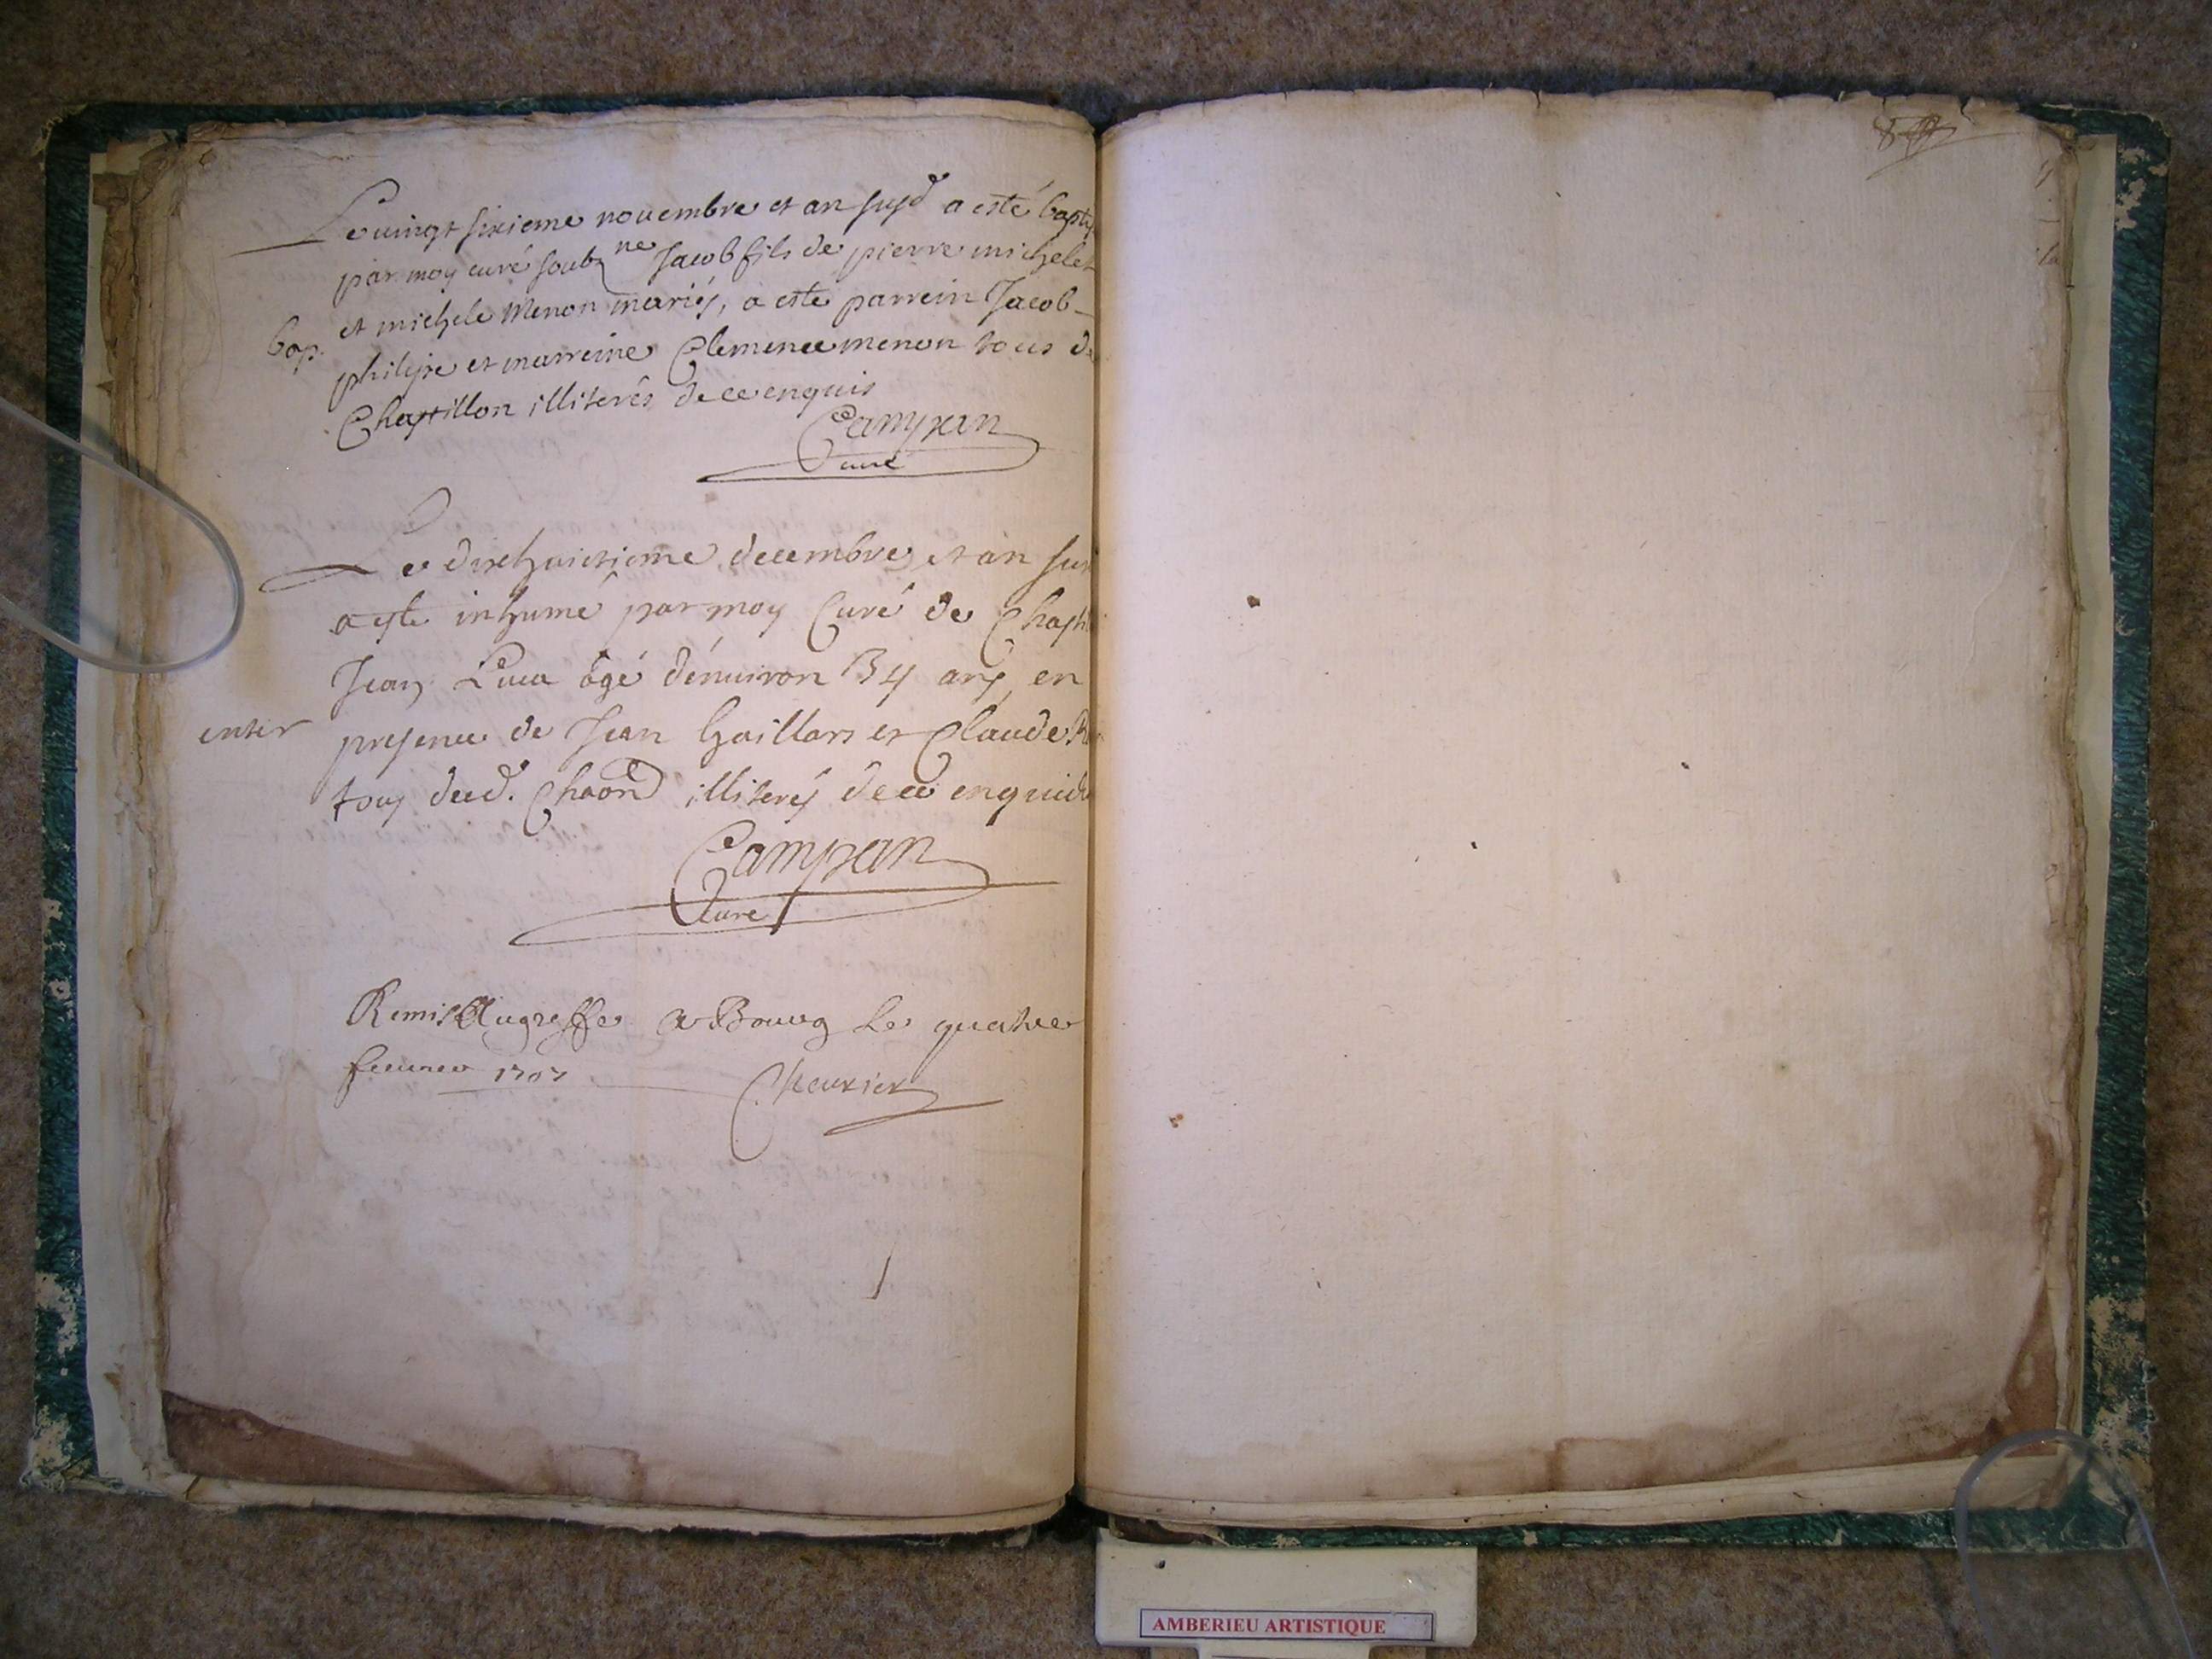 Le vingt sixieme novembre et an susd a esté bapti
par moy curé soubz ne Jacob fils de pierre michelet
et michele Menon mariés, a este parrein Jacob
bap. philipe et marreine Clemence menon tous de
Chastillon illiterés de ce enquis
Campan
curé
Le dixhuictieme decembre et an sus
a este inhumé par moy Curé de Chasti
Jean Luca âgé d'énuiron 54 ans, en
enter presence de Jean Gaillars et Claude
tous dud. Chaon illiterés de ce enquis
Campan
Curé
Remis Au greffe A Bourg le quatre
feuurier 1707
Cheurier
AMBERIEU ARTISTIQUE